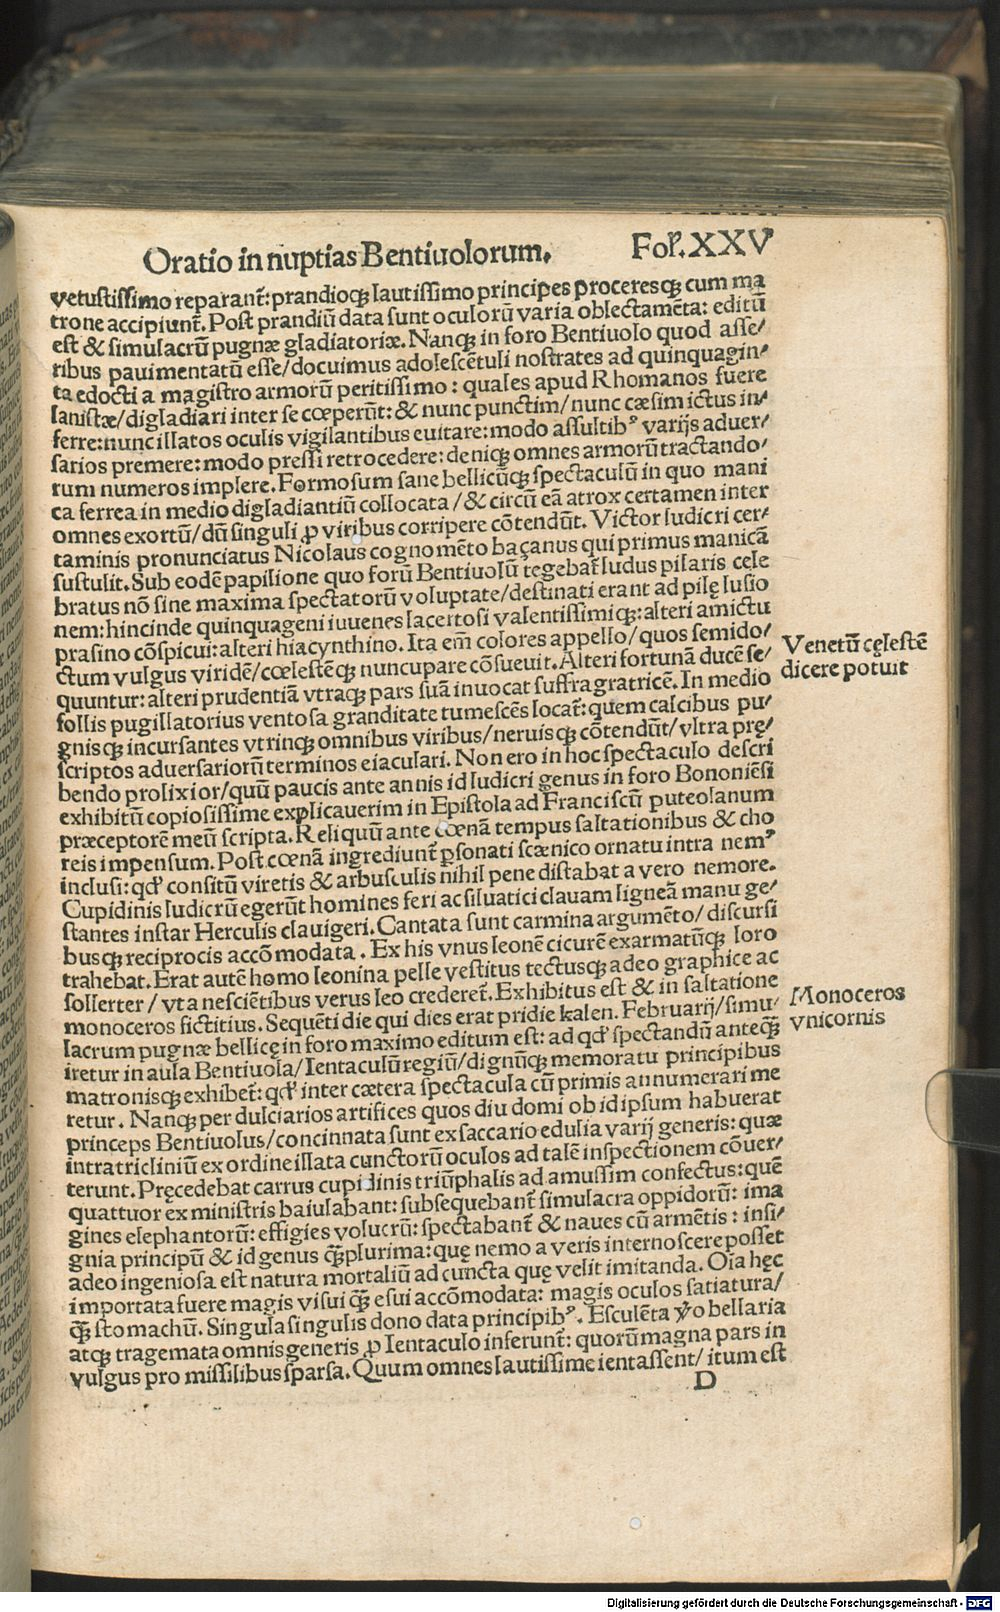 Oratio in nuptias Bentiuolorum. Fol. XXV
vetustissimo reparant̃: prandioqꝫ lautissimo principes proceresqꝫ cum ma
trone accipiunt̃. Post prandiũ data sunt oculorũ varia oblectamẽta: editũ
est & simulacrũ pugnæ gladiatoriæ. Nanqꝫ in foro Bentiuolo quod asse/
ribus pauimentatũ esse/ docuimus adolescẽtuli nostrates ad quinquagin/
ta edocti a magistro armorũ peritissimo: quales apud Rhomanos fuere
lanistæ/ digladiari inter se cœperũt: & nunc punctim/ nunc cæsim ictus in/
ferre: nunc illatos oculis vigilantibus euitare: modo assultibꝰ varijs aduer/
sarios premere: modo pressi retrocedere: deniqꝫ omnes armorũ tractando/
rum numeros implere. Formosum sane bellicũqꝫ spectaculũ in quo mani
ca ferrea in medio digladiantiũ collocata/ & circũ eã atrox certamen inter
omnes exortũ/ dũ singuli ꝓ viribus corripere cõtendũt. Victor ludicri cer/
taminis pronunciatus Nicolaus cognomẽto baçanus qui primus manicã
sustulit. Sub eodẽ papilione quo forũ Bentiuolũ tegebat̃ ludus pilaris cele
bratus nõ sine maxima spectatorũ voluptate/ destinati erant ad pilę lusio
nem: hincinde quinquageni iuuenes lacertosi valentissimiqꝫ: alteri amictu
prasino cõspicui: alteri hiacynthino. Ita em̃ colores appello/ quos semido/
ctum vulgus viridẽ/ cœlestẽqꝫ nuncupare cõsueuit. Alteri fortunã ducẽ se/
quuntur: alteri prudentiã vtraqꝫ pars suã inuocat suffragratricẽ. In medio
follis pugillatorius ventosa granditate tumescẽs locat̃: quem calcibus pu/
gnisqꝫ incursantes vtrinqꝫ omnibus viribus/ neruisqꝫ cõtendũt/ vltra prę/
scriptos aduersariorũ terminos eiaculari. Non ero in hoc spectaculo descri
bendo prolixior/ quũ paucis ante annis id ludicri genus in foro Bononiẽsi
exhibitũ copiosissime explicauerim in Epistola ad Franciscũ puteolanum
præceptorẽ meũ scripta. Reliquũ ante cœnã tempus saltationibus & cho
reis impensum. Post cœnã ingrediunt̃ ꝑsonati scænico ornatu intra nemꝰ
inclusi: qđ consitũ viretis & arbusculis nihil pene distabat a vero nemore.
Cupidinis ludicrũ egerũt homines feri ac siluatici clauam ligneã manu ge/
stantes instar Herculis clauigeri. Cantata sunt carmina argumẽto/ discursi
busqꝫ reciprocis accõmodata. Ex his vnus leonẽ cicurẽ exarmatũqꝫ loro
trahebat. Erat autẽ homo leonina pelle vestitus tectusqꝫ adeo graphice ac
sollerter/ vt a nesciẽtibus verus leo crederet̃. Exhibitus est & in saltatione
monoceros fictitius. Sequẽti die qui dies erat pridie kalen. Februarij/ simu/
lacrum pugnæ bellicę in foro maximo editum est: ad qđ spectandũ anteq̃ꝫ
iretur in aula Bentiuola/ Ientaculũ regiũ/ dignũqꝫ memoratu principibus
matronisqꝫ exhibet̃: qđ inter cætera spectacula cũ primis annumerari me
retur. Nanqꝫ per dulciarios artifices quos diu domi ob id ipsum habuerat
princeps Bentiuolus/ concinnata sunt ex saccario edulia varij generis: quæ
intra tricliniũ ex ordine illata cunctorũ oculos ad talẽ inspectionem cõuer/
terunt. Pręcedebat carrus cupidinis triũphalis ad amussim confectus: quẽ
quattuor ex ministris baiulabant: subsequebant̃ simulacra oppidorũ: ima
gines elephantorũ: effigies volucrũ: spectabant̃ & naues cũ armẽtis: insi/
gnia principũ & id genus q̃ꝫplurima: quę nemo a veris internoscere posset
adeo ingeniosa est natura mortaliũ ad cuncta quę velit imitanda. Oĩa hęc
importata fuere magis visui q̃ꝫ esui accõmodata: magis oculos satiatura/
q̃ꝫ stomachũ. Singula singulis dono data principibꝰ. Esculẽta ṽo bellaria
atqꝫ tragemata omnis generis ꝓ Ientaculo inferunt̃: quorũ magna pars in
vulgus pro missilibus sparsa. Quum omnes lautissime ientassent/ itum est
D
Venetũ cęlestẽ
dicere potuit
Monoceros
vnicornis
Digitalisierung gefördert durch die Deutsche Forschungsgemeinschaft - DFG